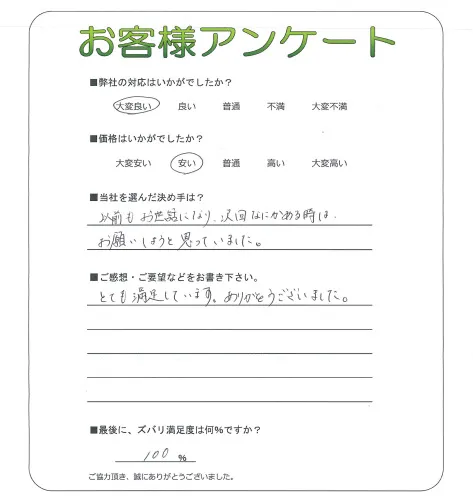 お客様アンケート
■弊社の対応はいかがでしたか？
大変良い 良い 普通 不満 大変不満
■価格はいかがでしたか？
大変安い 安い 普通 高い 大変高い
■当社を選んだ決め手は？
以前もお世話になり、次回なにかある時は、
お願いしようと思っていました。
■ご感想・ご要望などをお書き下さい。
とても満足しています。ありがとうございました。
■最後に、ズバリ満足度は何％ですか？
100 ％
ご協力頂き、誠にありがとうございました。